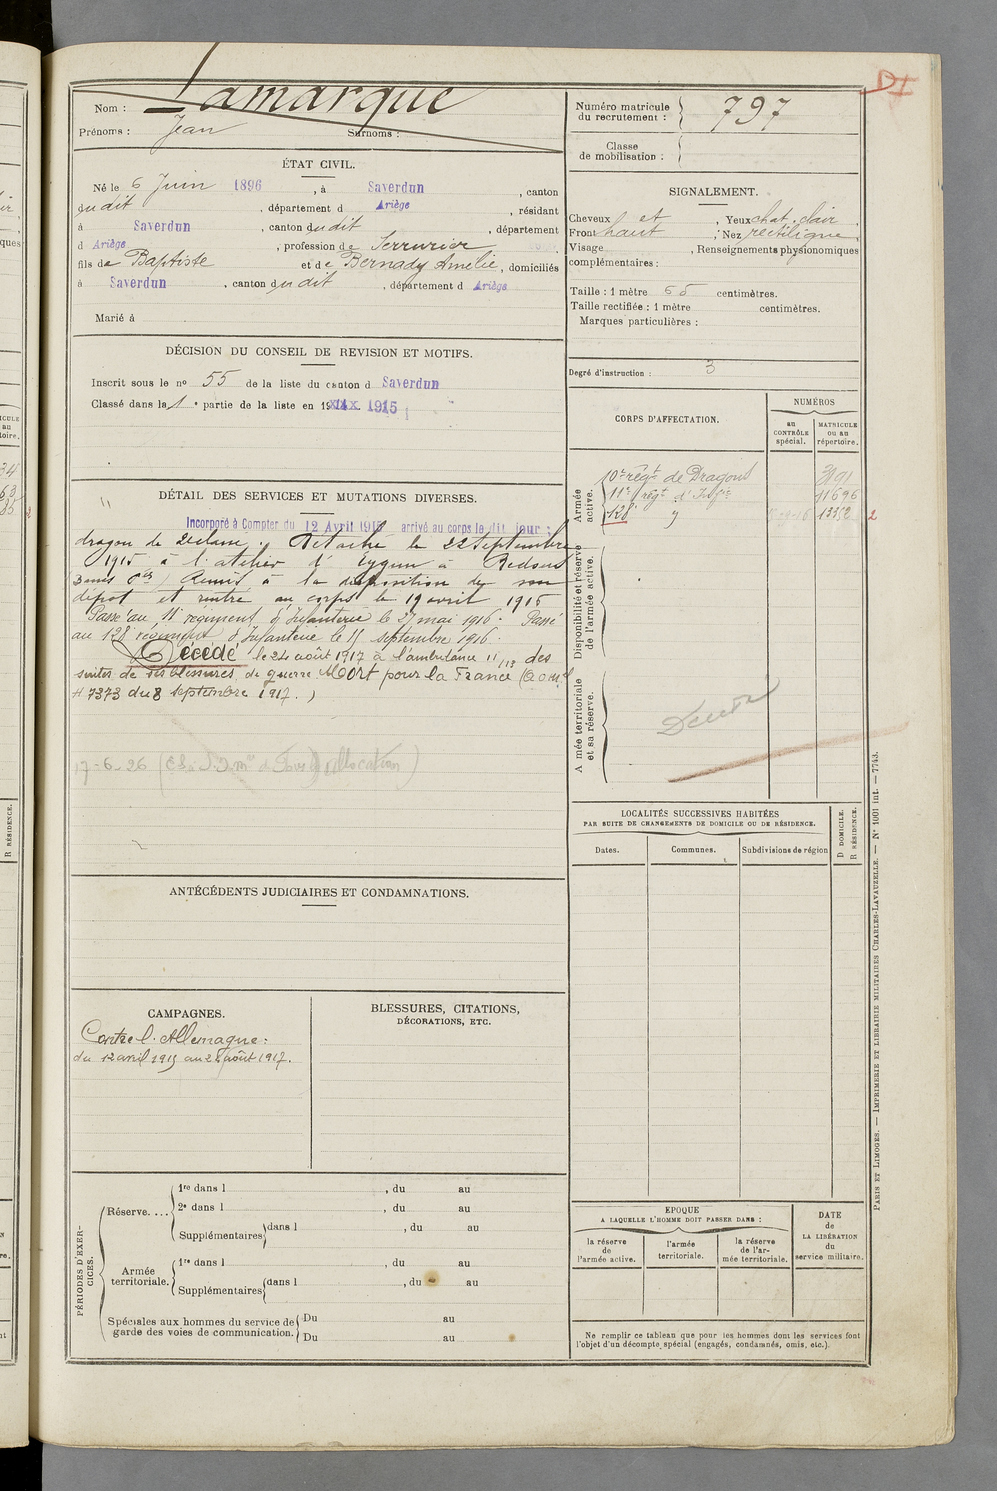 DI
Nom : Lamarque
Prénoms : Jean Surnoms :
Numéro matricule du recrutement : 797
Classe de mobilisation :
ÉTAT CIVIL.
Né le 6 Juin 1896, à Saverdun, canton
dudit, département d Ariège, résidant
à Saverdun, canton dudit, département
d Ariège, profession de Serrurier
fils de Baptiste et de Bernady Amélie, domiciliés
à Saverdun, canton dudit, département d Ariège
Marié à
SIGNALEMENT.
Cheveux chat, Yeux chat. clair
Front haut, Nez rectiligne
Visage, Renseignements physionomiques
complémentaires :
Taille : 1 mètre 65 centimètres.
Taille rectifiée : 1 mètre centimètres.
Marques particulières :
Degré d'instruction : 3
DÉCISION DU CONSEIL DE REVISION ET MOTIFS.
Inscrit sous le nº 55 de la liste du canton d Saverdun
Classé dans la 1e partie de la liste en 1915
DÉTAIL DES SERVICES ET MUTATIONS DIVERSES.
Incorporé à Compter du 12 Avril 1915 arrivé au corps le dit jour ;
dragon de 2e classe. Détaché le 22 Septembre
1915 à l'atelier d'Eygun à
Remis à la disposition de son
dépôt et rentré au corps le 19 avril 1915
Passé au 11e régiment d'Infanterie le 27 mai 1916. Passé
au 128e régiment d'Infanterie le 11 septembre 1916.
Décédé le 24 août 1917 à l'ambulance 11/13 des
suites de ses blessures de guerre Mort pour la France (
N 7373 du 8 septembre 1917.)
17-6-26 ( allocation )
CORPS D'AFFECTATION.
NUMÉROS
au CONTRÔLE spécial.
MATRICULE ou au répertoire.
Armée active.
10e régt de Dragons
11e régt d'Infie 11696
128e 13352 2
Disponibilité et réserve de l'armée active.
A mée territoriale et sa réserve.
LOCALITÉS SUCCESSIVES HABITÉES
PAR SUITE DE CHANGEMENTS DE DOMICILE OU DE RÉSIDENCE.
Dates. Communes. Subdivisions de région
D DOMICILE.
R RÉSIDENCE.
ANTÉCÉDENTS JUDICIAIRES ET CONDAMNATIONS.
CAMPAGNES.
Contre l'Allemagne :
du 12 avril 1915 au 24 août 1917.
BLESSURES, CITATIONS,
DÉCORATIONS, ETC.
PÉRIODES D'EXERCICES.
Réserve....
1re dans l , du au
2e dans l , du au
Supplémentaires dans l , du au
Armée territoriale.
1re dans l , du au
Supplémentaires dans l , du au
Spéciales aux hommes du service de garde des voies de communication.
Du au
Du au
EPOQUE
A LAQUELLE L'HOMME DOIT PASSER DANS :
la réserve de l'armée active.
l'armée territoriale.
la réserve de l'armée territoriale.
DATE de LA LIBÉRATION du service militaire.
Ne remplir ce tableau que pour les hommes dont les services font
l'objet d'un décompte spécial (engagés, condamnés, omis, etc.).
PARIS ET LIMOGES. — IMPRIMERIE ET LIBRAIRIE MILITAIRES CHARLES-LAVAUZELLE. — Nº 1001 int. — 7743.